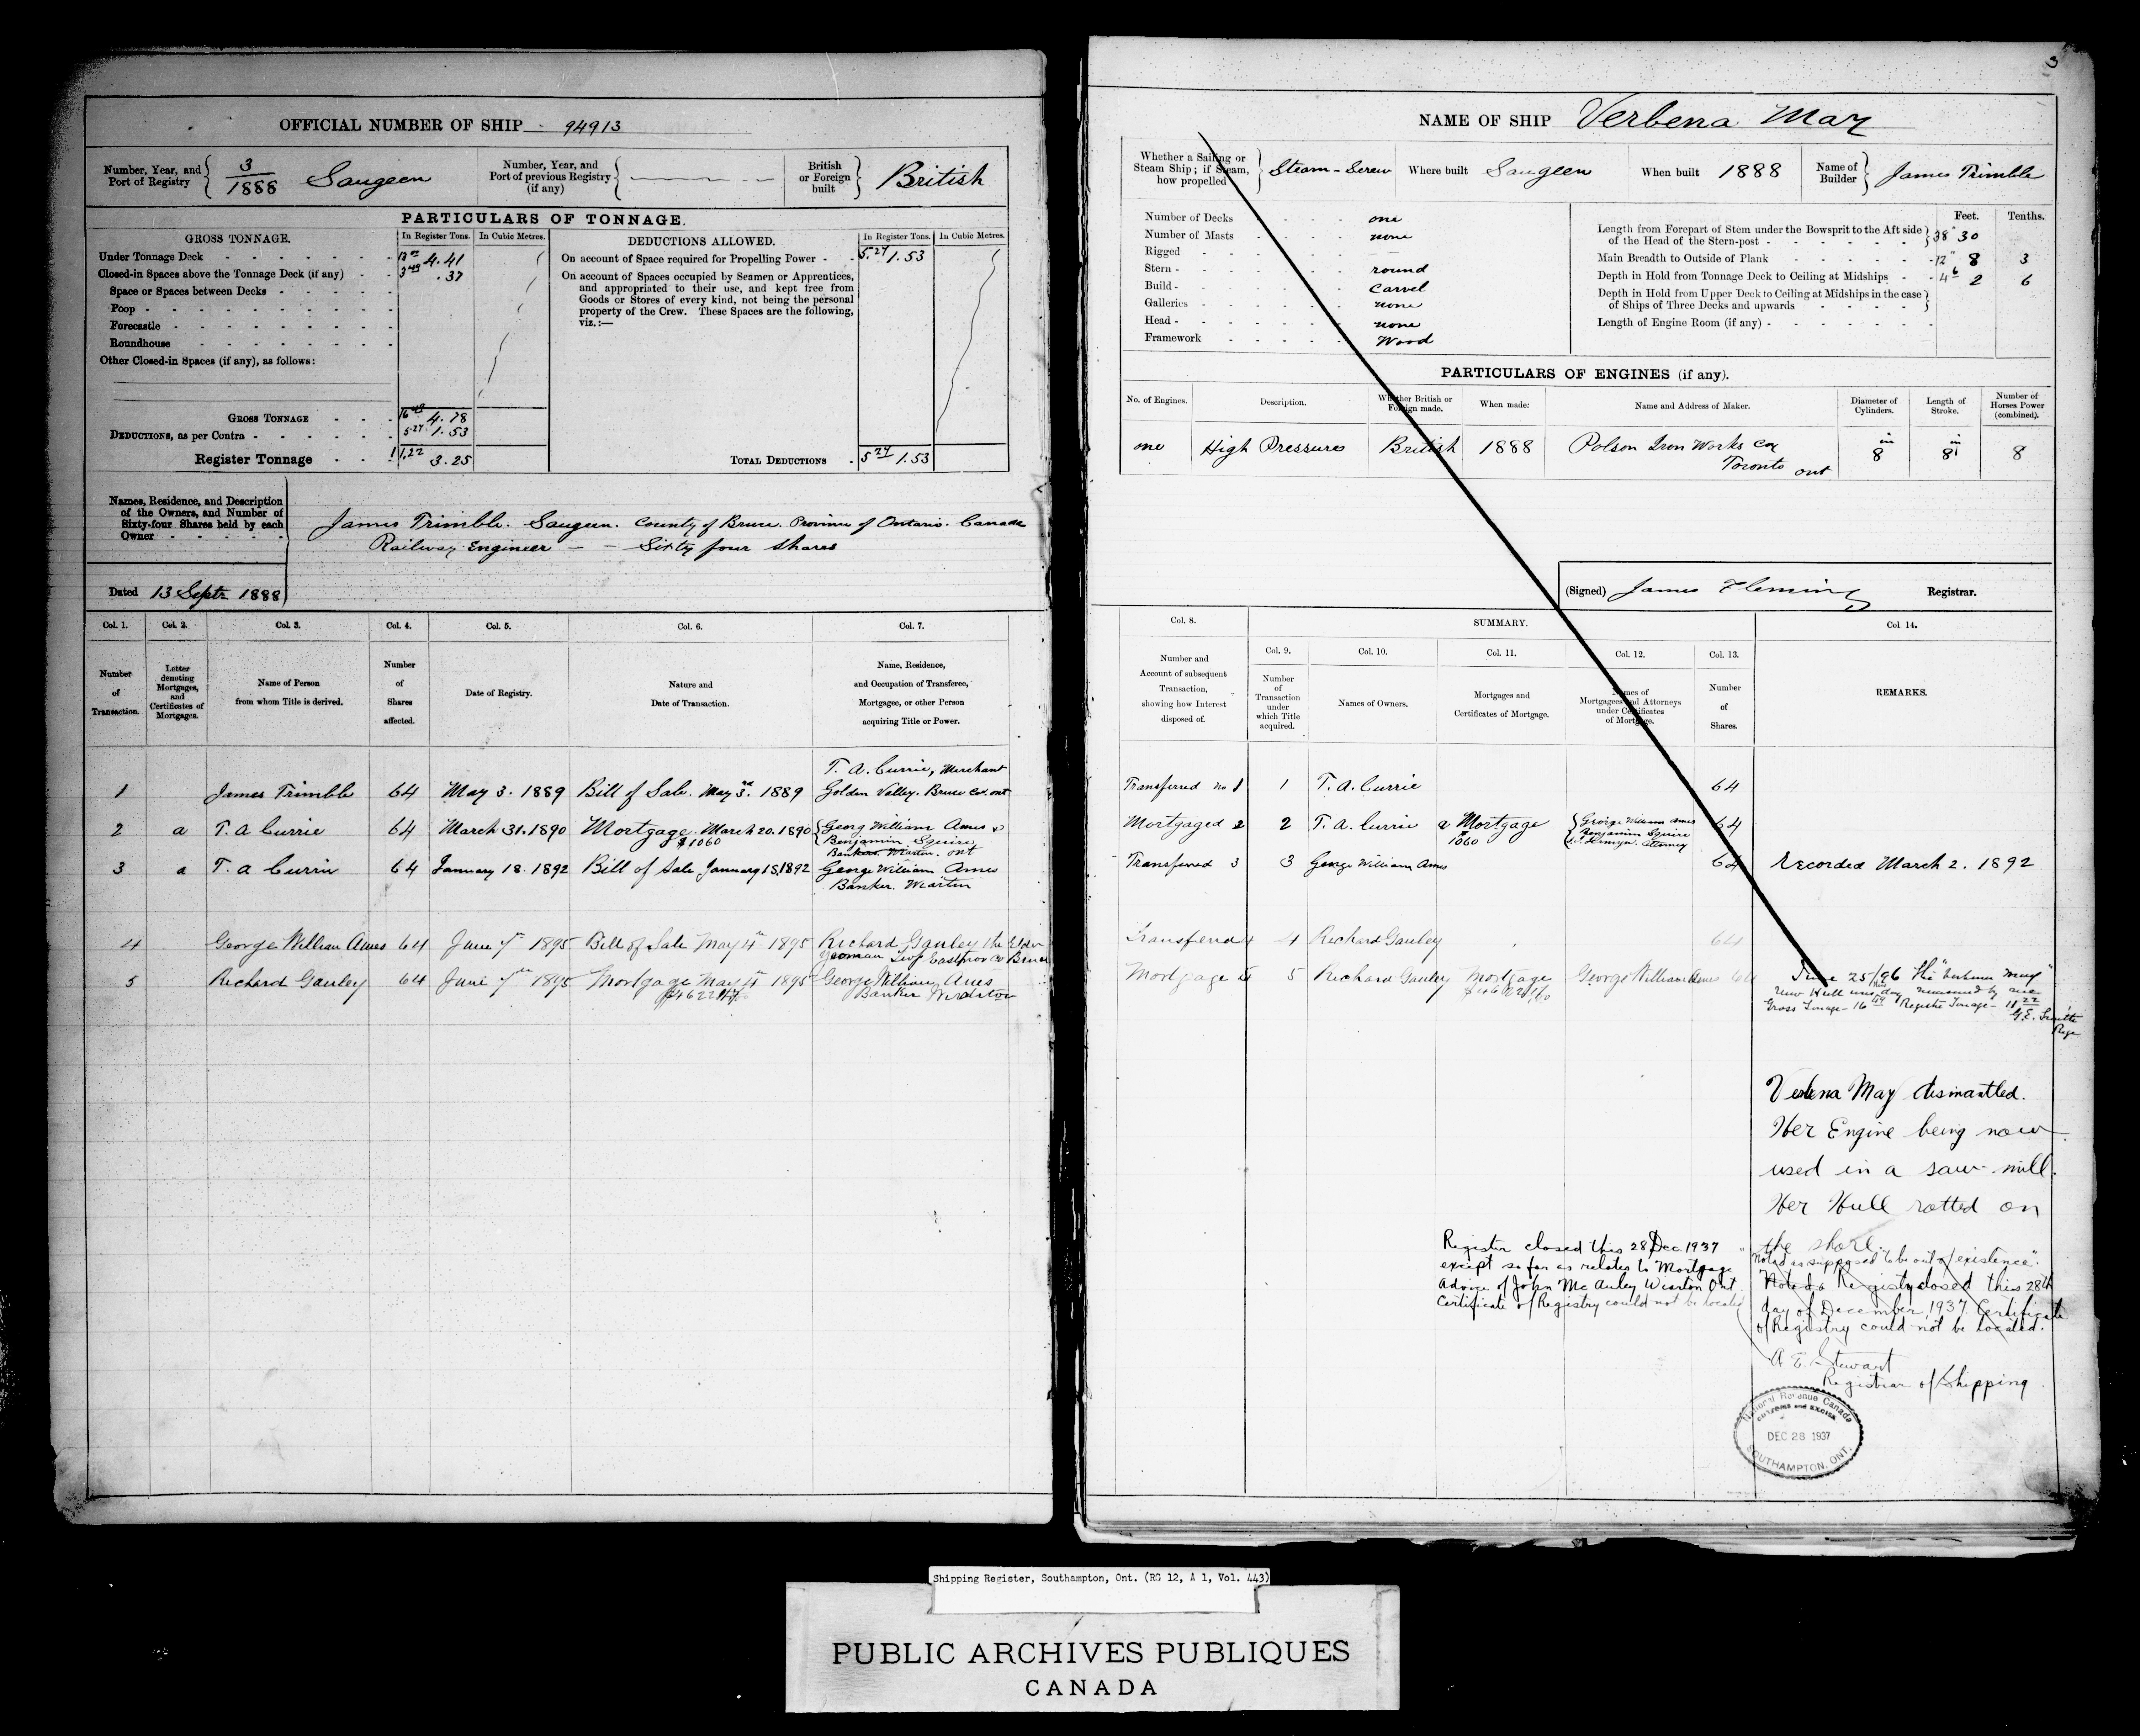 OFFICIAL NUMBER OF SHIP 94913
Number, Year, and Port of Registry 3/1888 Saugeen
Number, Year, and Port of previous Registry (if any)
British or Foreign built British
PARTICULARS OF TONNAGE.
GROSS TONNAGE. In Register Tons. In Cubic Metres.
Under Tonnage Deck 4.41
Closed-in Spaces above the Tonnage Deck (if any) 3.49 .37
Space or Spaces between Decks
Poop
Forecastle
Roundhouse
Other Closed-in Spaces (if any), as follows:
GROSS TONNAGE 16.49 4.78
DEDUCTIONS, as per Contra 5.27 1.53
Register Tonnage 11.22 3.25
DEDUCTIONS ALLOWED. In Register Tons. In Cubic Metres.
On account of Space required for Propelling Power 5.27 1.53
On account of Spaces occupied by Seamen or Apprentices,
and appropriated to their use, and kept free from
Goods or Stores of every kind, not being the personal
property of the Crew. These Spaces are the following,
viz.:—
TOTAL DEDUCTIONS 5.27 1.53
Names, Residence, and Description
of the Owners, and Number of
Sixty-four Shares held by each
Owner
James Trimble. Saugeen. County of Bruce. Province of Ontario. Canada
Railway Engineer — – Sixty four shares
Dated 13 Septr 1888
Col. 1. Col. 2. Col. 3. Col. 4. Col. 5. Col. 6. Col. 7.
Number of Transaction.
Letter denoting Mortgages, and Certificates of Mortgages.
Name of Person from whom Title is derived.
Number of Shares affected.
Date of Registry.
Nature and Date of Transaction.
Name, Residence, and Occupation of Transferee, Mortgagee, or other Person acquiring Title or Power.
1 James Trimble 64 May 3. 1889 Bill of Sale. May 3rd. 1889 T. A. Currie, Merchant
Golden Valley. Bruce Co. ont
2 a T. A Currie 64 March 31. 1890 Mortgage. March 20. 1890 Georg William Ames &
$1060 Benjamin Squire
Bankers. Wiarton. ont
3 a T. A Currie 64 January 18. 1892 Bill of Sale January 15, 1892 George William Ames
Banker. Wiarton
4 George William Ames 64 June 7th 1895 Bill of Sale May 4th 1895 Richard Gauley the Elder
Yeoman Twp Eastnor Co Bruce
5 Richard Gauley 64 June 7th 1895 Mortgage May 4th 1895 George William Ames
Banker Wiarton
3
NAME OF SHIP Verbena May
Whether a Sailing or Steam Ship; if Steam, how propelled Steam-Screw
Where built Saugeen
When built 1888
Name of Builder James Trimble
Number of Decks one
Number of Masts none
Rigged
Stern round
Build Carvel
Galleries none
Head none
Framework Wood
Feet. Tenths.
Length from Forepart of Stem under the Bowsprit to the Aft side
of the Head of the Stern-post 38 30
Main Breadth to Outside of Plank 12 8 3
Depth in Hold from Tonnage Deck to Ceiling at Midships 4 6 2 6
Depth in Hold from Upper Deck to Ceiling at Midships in the case
of Ships of Three Decks and upwards
Length of Engine Room (if any)
PARTICULARS OF ENGINES (if any).
No. of Engines. Description. Whether British or Foreign made. When made: Name and Address of Maker. Diameter of Cylinders. Length of Stroke. Number of Horses Power (combined).
one High Pressure British 1888 Polson Iron Works Co in 8 in 8 8
Toronto ont
(Signed) James Fleming Registrar.
Col. 8. SUMMARY. Col. 14.
Number and Account of subsequent Transaction, showing how Interest disposed of.
Col. 9. Col. 10. Col. 11. Col. 12. Col. 13.
Number of Transaction under which Title acquired.
Names of Owners.
Mortgages and Certificates of Mortgage.
Names of Mortgagees and Attorneys under Certificates of Mortgage.
Number of Shares.
REMARKS.
Transferred no 1 1 T. A. Currie 64
Mortgaged 2 2 T. A. Currie a Mortgage George William Ames 64
$1060 Benjamin Squire
Attorney
Transferred 3 3 George William Ames 64 Recorded March 2. 1892
Transferred 4 4 Richard Gauley 64
Mortgage 5 5 Richard Gauley Mortgage George William Ames 64
June 25/96 the "Verbena May"
New Hull was this day measured by me
Gross Tonage - 16 49 Registr Tonage - 11 22
Verbena May dismantled.
Her Engine being now
used in a saw-mill.
Her Hull rotted on
the shore.
Noted as supposed to be out of existence".
Noted & Registry closed this 28th
day of December, 1937. Certificate
of Registry could not be located.
A E. Stewart
Registrar of Shipping
Register closed this 28 Dec 1937
except so far as relates to Mortgage
Advice of John McAuley Wiarton Ont
Certificate of Registry could not be located
National Revenue Canada
CUSTOMS and EXCISE
DEC 28 1937
SOUTHAMPTON, ONT.
Shipping Register, Southampton, Ont. (RG 12, A 1, Vol. 443)
PUBLIC ARCHIVES PUBLIQUES
CANADA